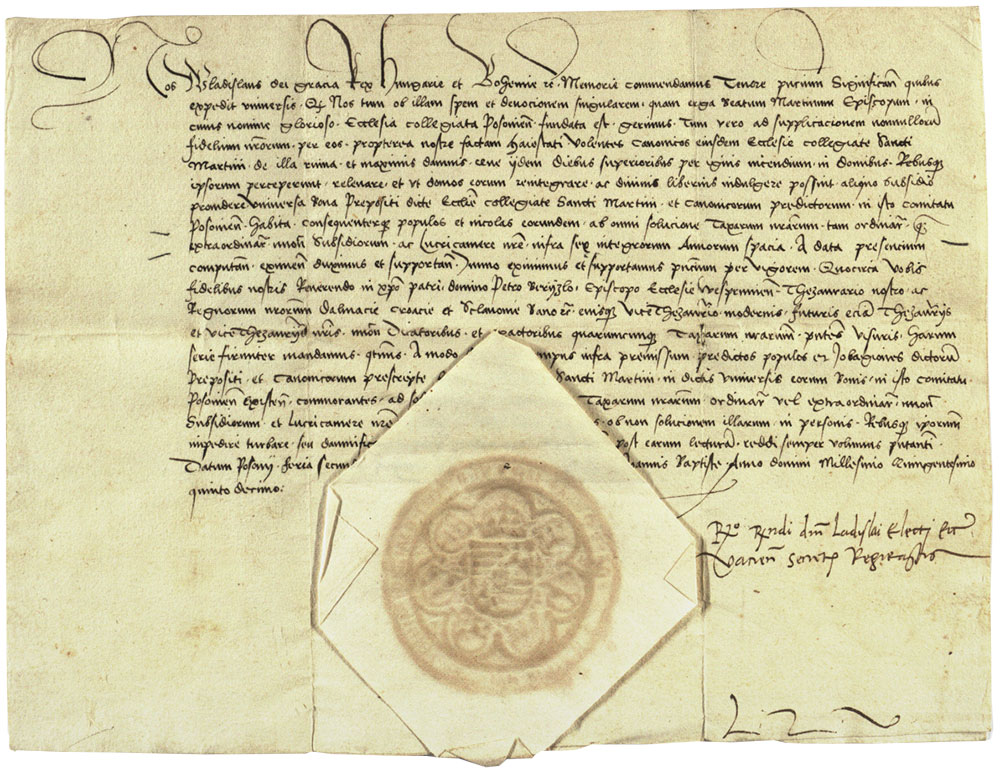 Nos Wladislaus dei gracia Rex Hungarie et Bohemie rc. Memorie commendamus Tenore pncium Significan quibus
expedit vniuersis. Q Nos tum ob illam spem et deuocionem singularem, quam erga Beatum Martinum Episcopum, in
cuius nomine glorioso. Ecclesia collegiata Posonien. fundata est. gerimus. Tum vero ad supplicacionem nonnulloru
fidelium nrorum. per eos. propterea nostre factam Maiestati Volentes Canonicos eiusdem Ecclesie collegiate Sancti
Martini. de illa ruina. et maximis damnis. ceu ijdem diebus superioribus per ignis incendium. in domibus. Rebusq
ipsorum perceperunt. releuare. et vt domos eorum reintegrare. ac diuinis liberius indulgere possint. aliquo subsidio
prouidere Vniuersa bona Prepositi dicte Ecclie collegiate Sancti Martini. et Canonicorum predictorum. in isto comitatu
Posonien. habita. consequenterq populos et incolas eorundem. ab omni solucione Taxarum nrarum. tam ordinar. q
extraordinar. necnon Subsidiorum. ac Lucricamere nre. infra sex integrorum Annorum spacia. A data presencium
computan. eximen duximus et supportan. Immo eximimus et supportamus pncium per vigorem. Quocirca Vobis
fidelibus nostris Reuerendo in xpo patri. domino Petro Berizlo. Episcopo Ecclesie Wesprimien. Thezaurario nostro. ac
Regnorum nrorum Dalmacie Croacie et Sclauonie Bano rc. eiusq Vice Thezaurario. modernis. futuris ecia Thezaurijs
et vice Thezaurijs nris. necnon Dicatoribus. et exactoribus quarumcunq Taxarum nrarum. pntes visuris. harum
serie firmiter mandamus. qtinus. A modo tempus infra premissum predictos populos et Jobagiones dictoru
Prepositi. et Canonicorum prescripte Sancti Martini. in dictis Vniuersis eorum bonis. in isto comitatu
Posonien existen. commorantes. ad so Taxarum nrarum. ordinar vel extraordinar. necnon
Subsidiorum. et Lucricamere nre ob non solucionem illarum. in personis. Rebusq ipsorum
impedire turbare. seu damnific post earum lecturam. reddi semper volumus pntanti.
Datum Posonij. feria secun hannis Baptiste Anno domini Millesimo Quingentesimo
quinto decimo.
Rndi dni Ladislai Electi
Vacien Secret